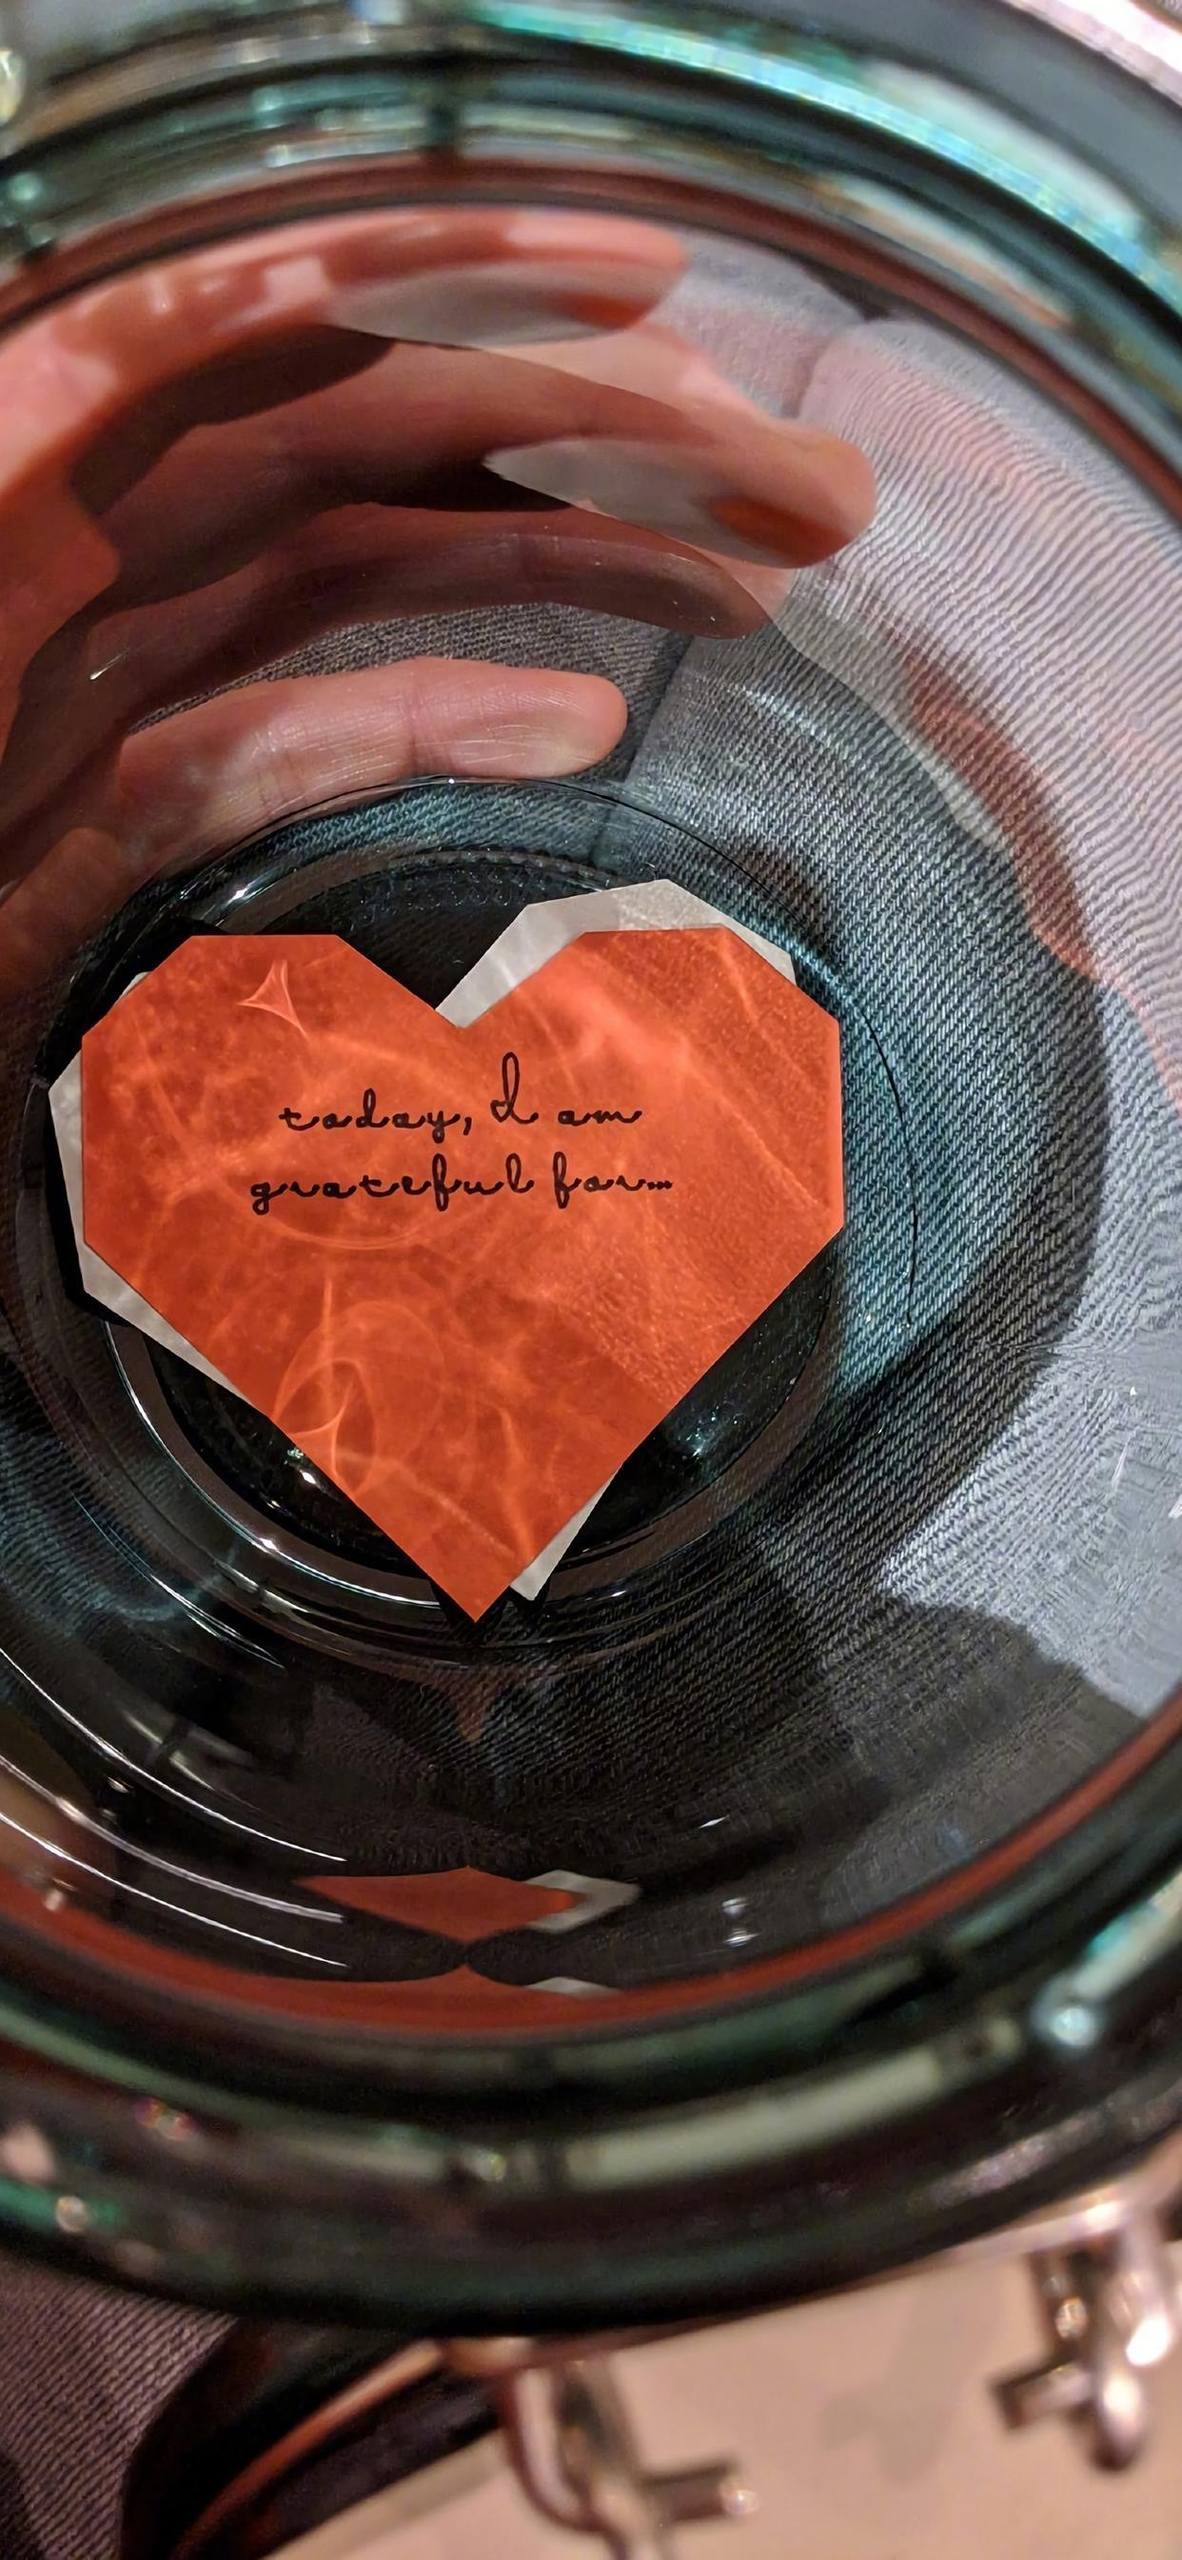 today, I am
grateful for...